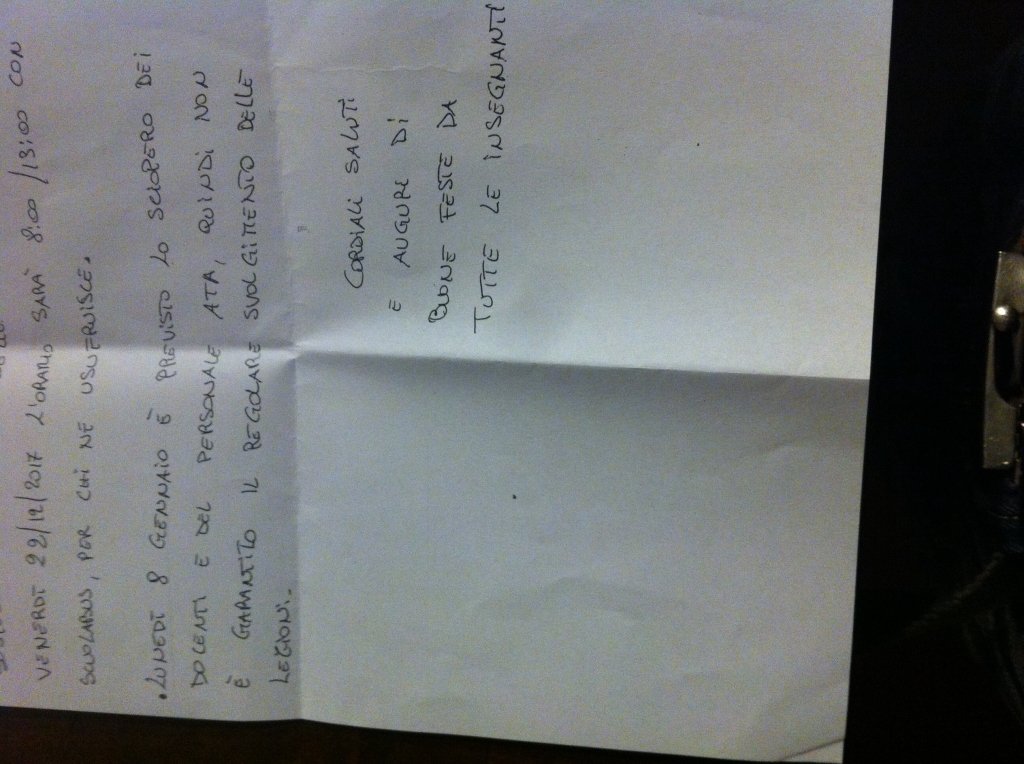 VENERDÌ 22/12/2017 L'ORARIO SARÀ 8:00/13:00 CON
SCUOLABUS, PER CHI NE USUFRUISCE.
• LUNEDÌ 8 GENNAIO È PREVISTO LO SCIOPERO DEI
DOCENTI E DEL PERSONALE ATA, QUINDI NON
È GARANTITO IL REGOLARE SVOLGIMENTO DELLE
LEZIONI.
CORDIALI SALUTI
E AUGURI DI
BUONE FESTE DA
TUTTE LE INSEGNANTI